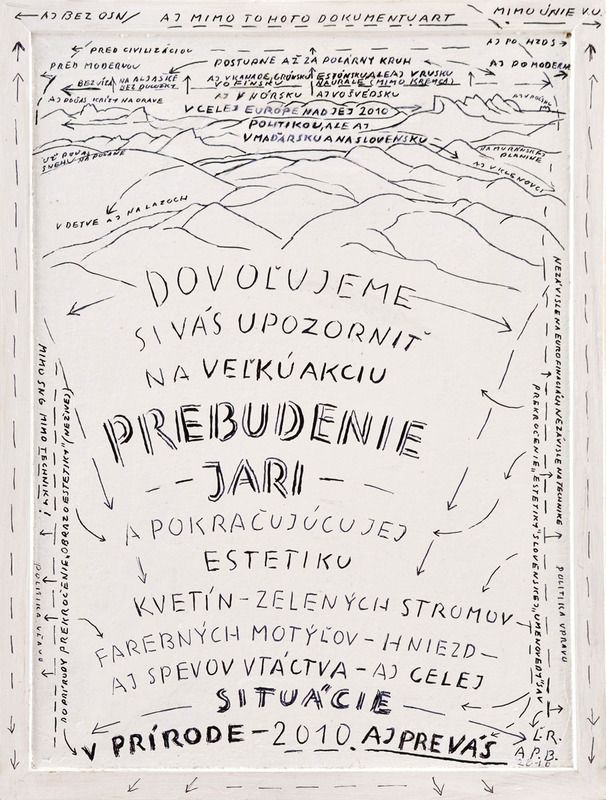 AJ BEZ OSN/ AJ MIMO TOHOTO DOKUMENTU ART MIMO ÚNIE V.U.
PRED CIVILIZÁCIOU
AJ PO HZDS
PRED MODERNOU
POSTUPNE AŽ ZA POLÁRNY KRUH
AJ PO MODERNE
BEZ VÍZA NA ALJAŠKE
BEZ DUCHERY
AJ V KANADE, GRÓNSKU
VO FÍNSKU
ESTÓNSKU ALE AJ V RUSKU
NA URALE (MIMO KREMĽA)
AJ POJAS KRIŽTY NA ORAVE
AJ V NÓRSKU AJ VO ŠVÉDSKU
V CELEJ EURÓPE NAD JEJ 2010
POLITIKOU, ALE AJ
V MAĎARSKU A NA SLOVENSKU
SNEHU NA POĽANE
NA MURÁNSKEJ
PLANINE
AJ V KLENOVCI
V DETVE AJ NA LAZOCH
DOVOĽUJEME
SI VÁS UPOZORNIŤ
NA VEĽKÚ AKCIU
PREBUDENIE
— JARI —
A POKRAČUJÚCU JEJ
ESTETIKU
KVETÍN – ZELENÝCH STROMOV –
FAREBNÝCH MOTÝĽOV – HNIEZD –
AJ SPEVOV VTÁCTVA – AJ CELEJ
SITUÁCIE
V PRÍRODE – 2010. AJ PRE VÁS
MIMO SNG MIMO TECHNIKY!
POLITIKA VĽAVO
DO PRÍRODY PREKROČENIE „OBRAZO ESTETIKY" (NEŽIVEJ)
NEZÁVISLE NA EUROFINANCIÁCH NEZÁVISLE NA TECHNIKE
PREKROČENIE „ESTETIKY" SLOVENSKEJ „UMENOVEDY" AJ V
POLITIKA VPRAVO
Ľ.R.
A P.B.
2010